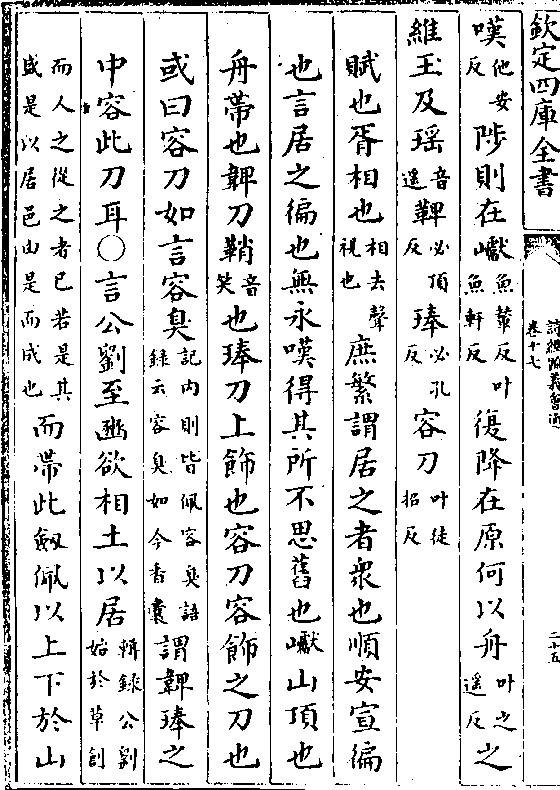 欽定四庫全書
卷十七
二十五
嘆他安反陟則在巘魚輦反叶魚軒反復降在原何以舟叶之遥反之
維玉及瑶音遥鞞必頂反琫必孔反容刀叶徒招反
賦也胥相也相去聲視也庶繁謂居之者衆也順安宣徧
也言居之徧也無永嘆得其所不思舊也巘山頂也
舟帶也鞞刀鞘音笑也琫刀上飾也容刀容飾之刀也
或曰容刀如言容臭記内則皆佩容臭語録云容臭如今香囊謂鞞琫之
中容此刀耳○言公劉至豳欲相土以居輯録公劉始於草創
而人之從之者已若是其盛是以居邑由是而成也而帶此劔佩以上下於山